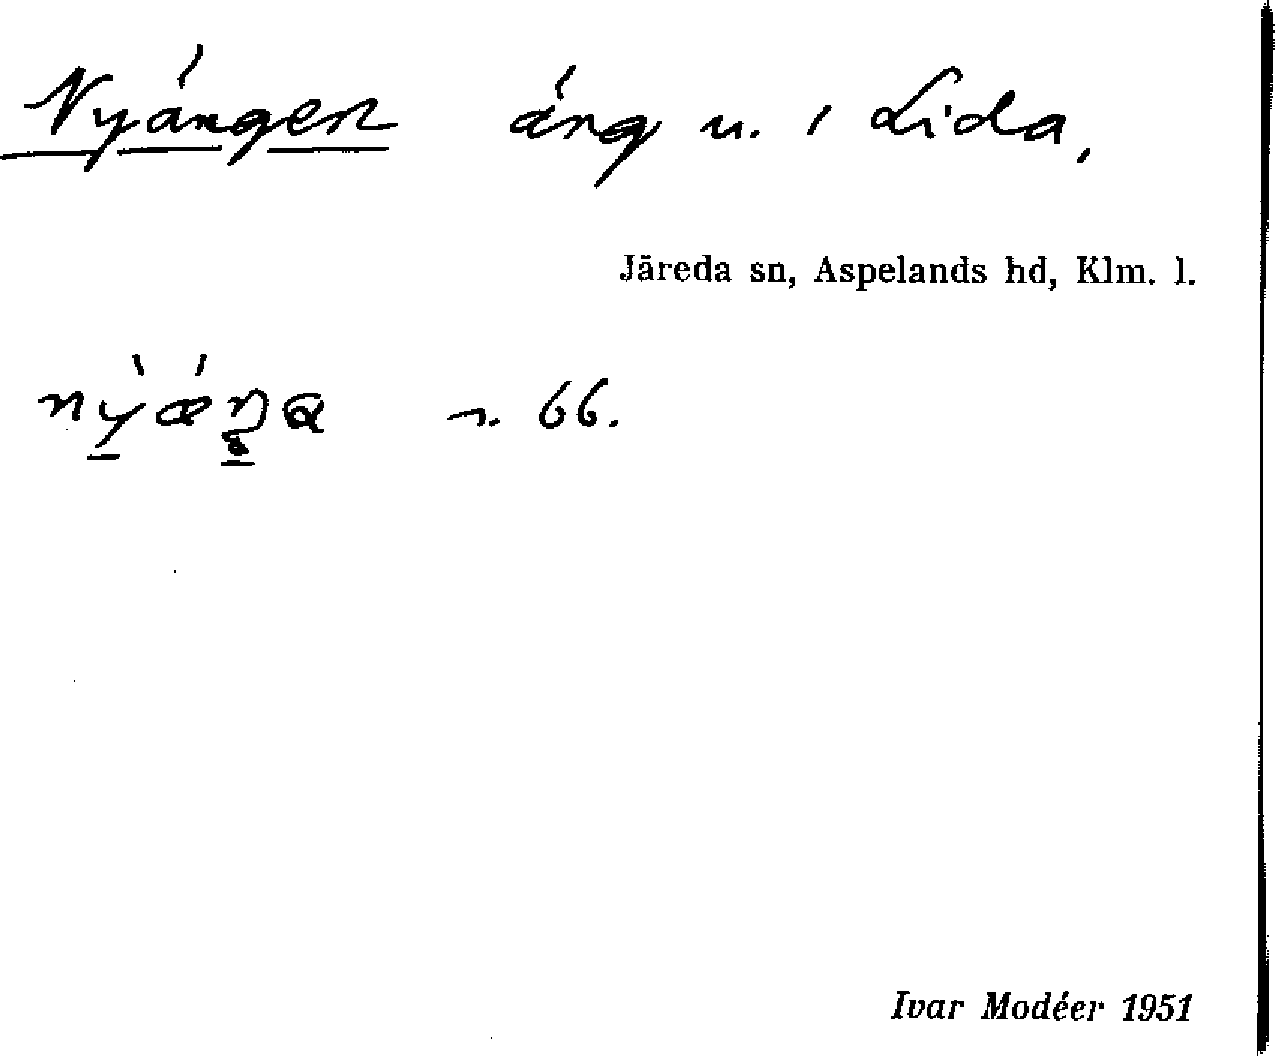 Nyängen äng u. i Lida,
Järeda sn, Aspelands hd, Klm. l.
n. 66.
Ivar Modéer 1951